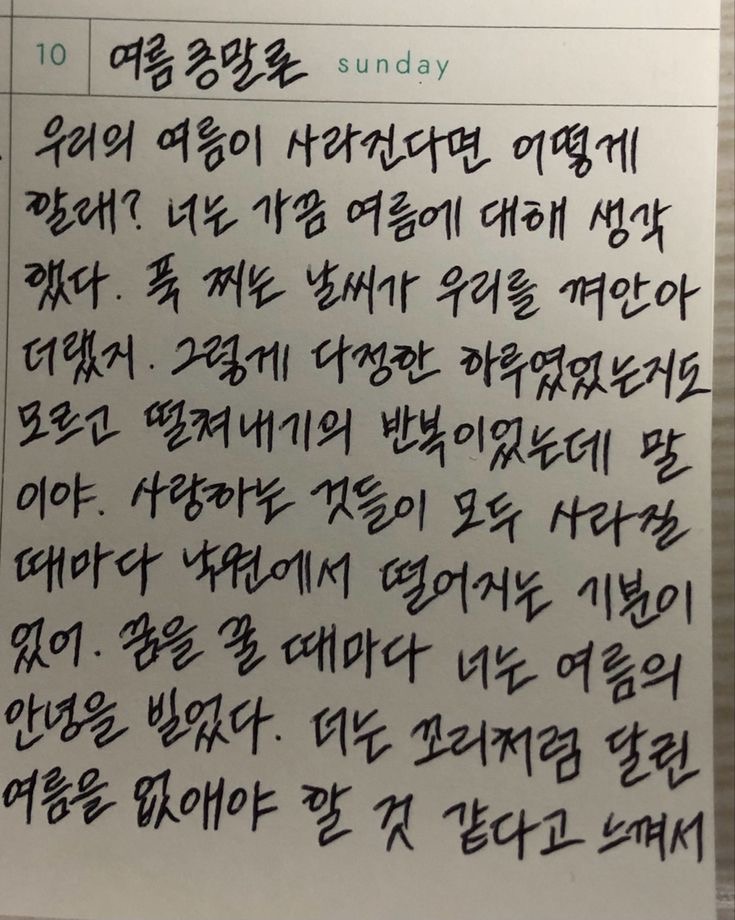 10 여름 종말론 sunday
우리의 여름이 사라진다면 어떻게
할래? 너는 가끔 여름에 대해 생각
했다. 푹 찌는 날씨가 우리를 껴안아
더랬지. 그렇게 다정한 하루였었는지도
모르고 떨쳐내기의 반복이었는데 말
이야. 사랑하는 것들이 모두 사라질
때마다 낙원에서 떨어지는 기분이
었어. 꿈을 꿀 때마다 너는 여름의
안녕을 빌었다. 더는 꼬리처럼 달린
여름을 없애야 할 것 같다고 느껴서